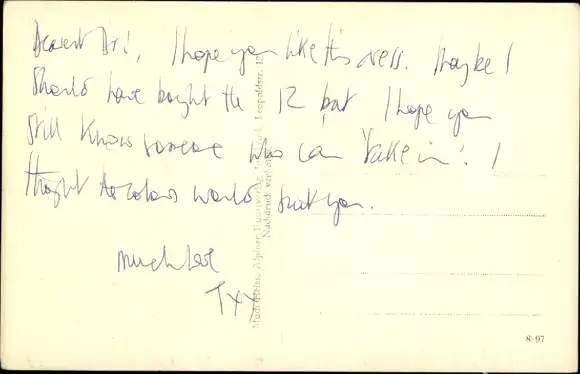 Dearest Dri, I hope you like this dress. Maybe I
should have bought the 12 but I hope you
still know someone who can 'take in'! I
thought the colours would suit you.
Much love
T xx
Much-Heiss, Alpiner Kunstverlag, Innsbruck, Leopoldstr. 12
Nachdruck verboten
8-97